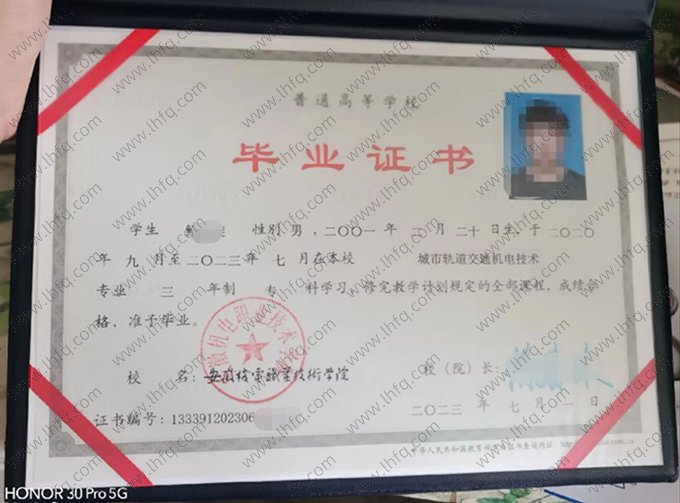 普通高等学校
毕业证书
学生 性别 男，二〇〇一年 月二十日生，于二〇二〇
年九月至二〇二三年七月在本校 城市轨道交通机电技术
专业 三 年制 专 科学习，修完教学计划规定的全部课程，成绩合
格，准予毕业。
校 名：安徽机电职业技术学院
校（院）长：
二〇二三年七月一日
证书编号：133391202306
中华人民共和国教育部学历证书查询网址：http://
HONOR 30 Pro 5G
www.lhfq.com